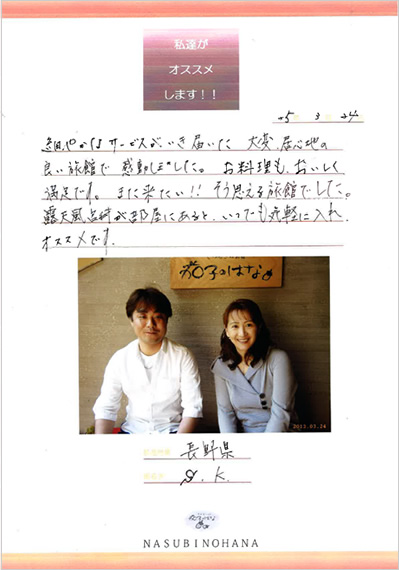 私達が
オススメ
します！！
25 3 24
細やかなサービスがいき届いた 大変、居心地の
良い旅館で 感動しました。 お料理も、おいしく
満足です。 また来たい!! そう思える旅館でした。
露天風呂付がお部屋にあると、いつでも気軽に入れ、
オススメです。
茄子のはな
2013.03.24
長野県
S. K.
NASUBINOHANA